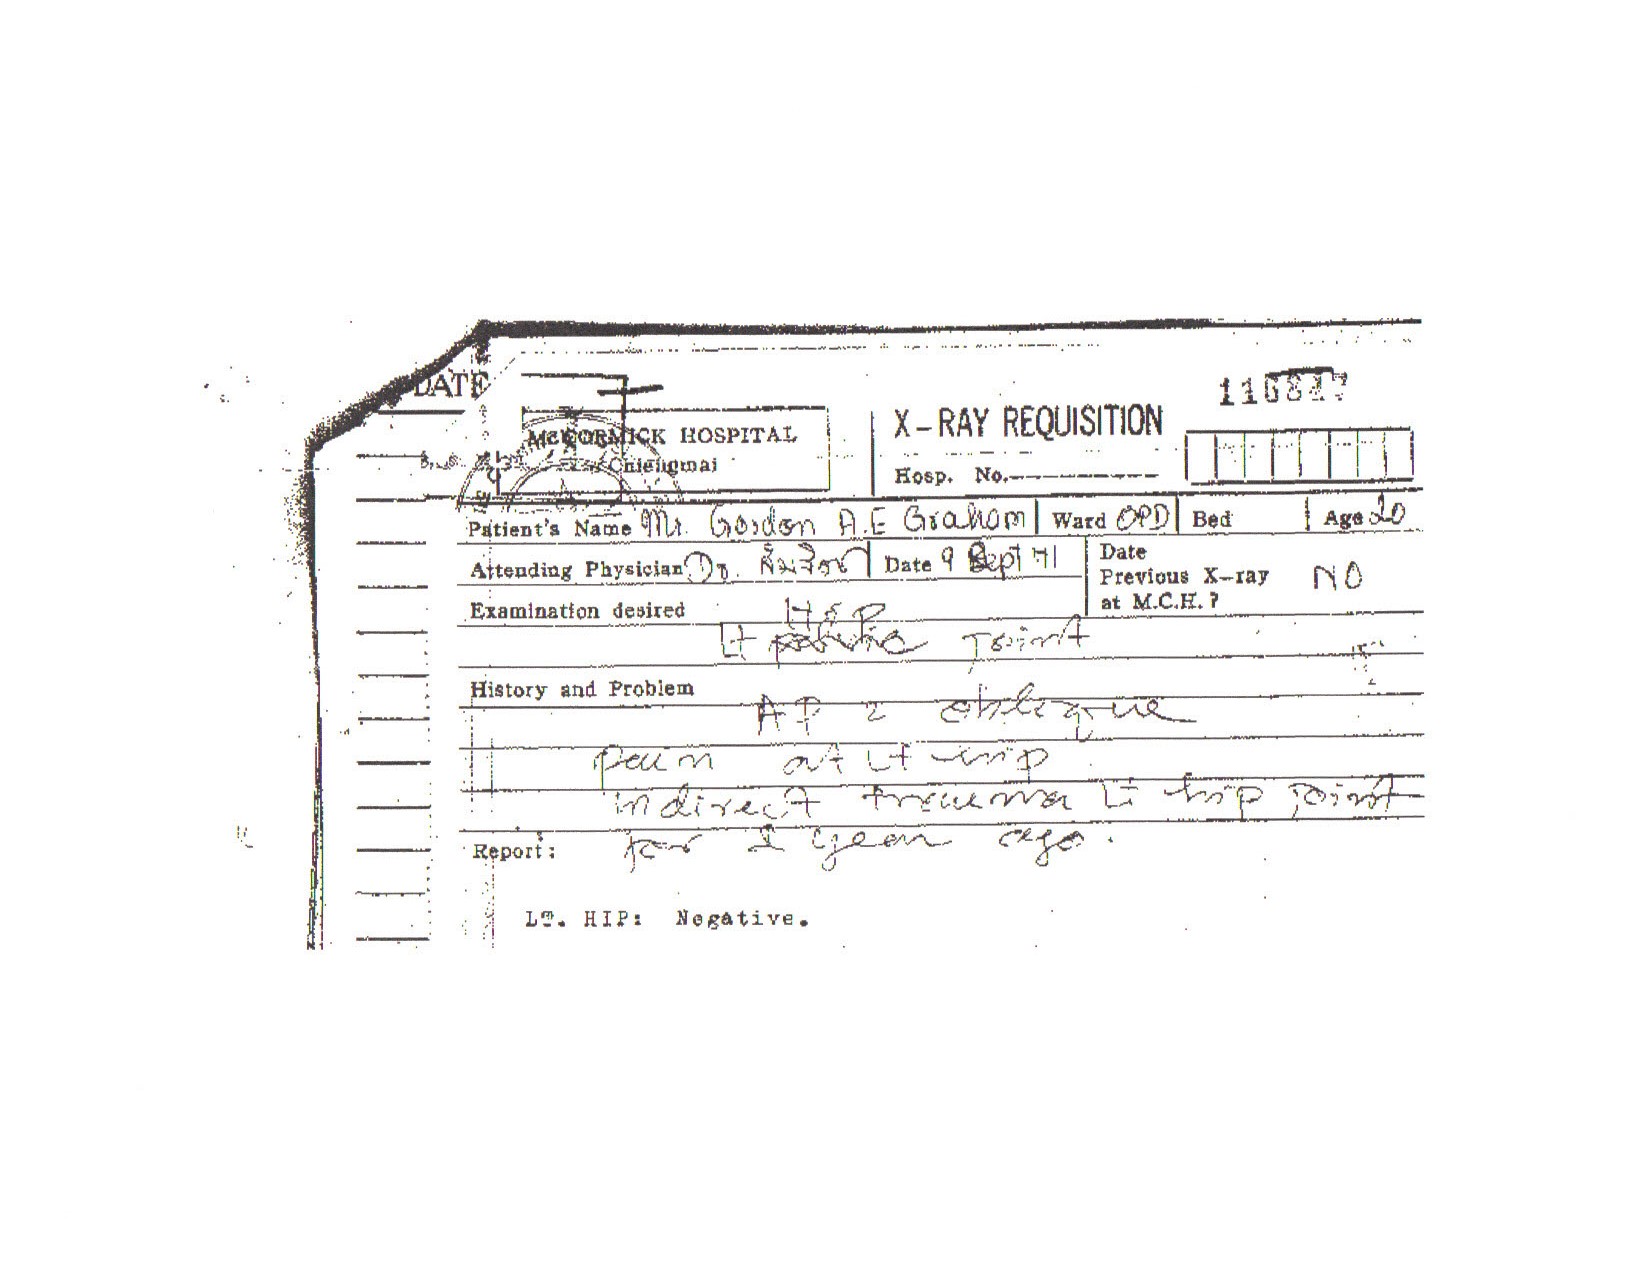 DATE
116847
McCORMICK HOSPITAL
Chiengmai
X-RAY REQUISITION
Hosp. No.
Patient's Name Mr. Gordon A.E Graham Ward OPD Bed Age 20
Attending Physician Dr. Date 9 Sept 71 Date
Previous X-ray NO
at M.C.H.?
Examination desired
Lt joint
History and Problem
AP & oblique
pain at Lt hip
indirect trauma Lt hip joint
for 1 year ago.
Report:
LT. HIP: Negative.